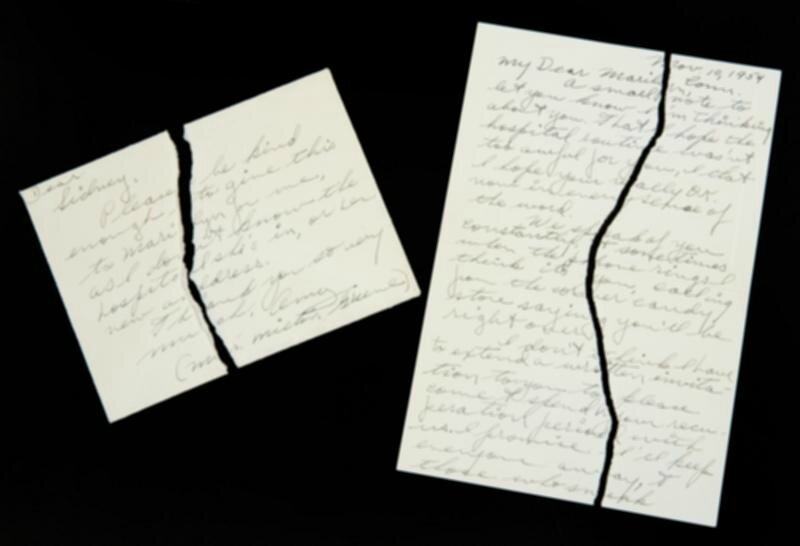 Dear
Sidney,
Please be kind
enough to give this
to Marilyn for me,
as I don't know the
hospital she's in, or her
new address.
Thank you so very
much, Amy
(Mrs. Milton Greene)
Nov. 19, 1954
Conn.
My Dear Marilyn,
A small note to
let you know I'm thinking
about you. That I hope the
hospital routine wasn't
too awful for you, & that
I hope your really OK.
now in every sense of
the word.
We speak of you
constantly, & sometimes
when the phone rings I
think it's you, calling
from the corner candy
store saying you'll be
right over.
I don't think I have
to extend a written invita-
tion to you to please
come & spend your recu-
peration period with
us. I promise I'll keep
everyone away, &
those who sneak